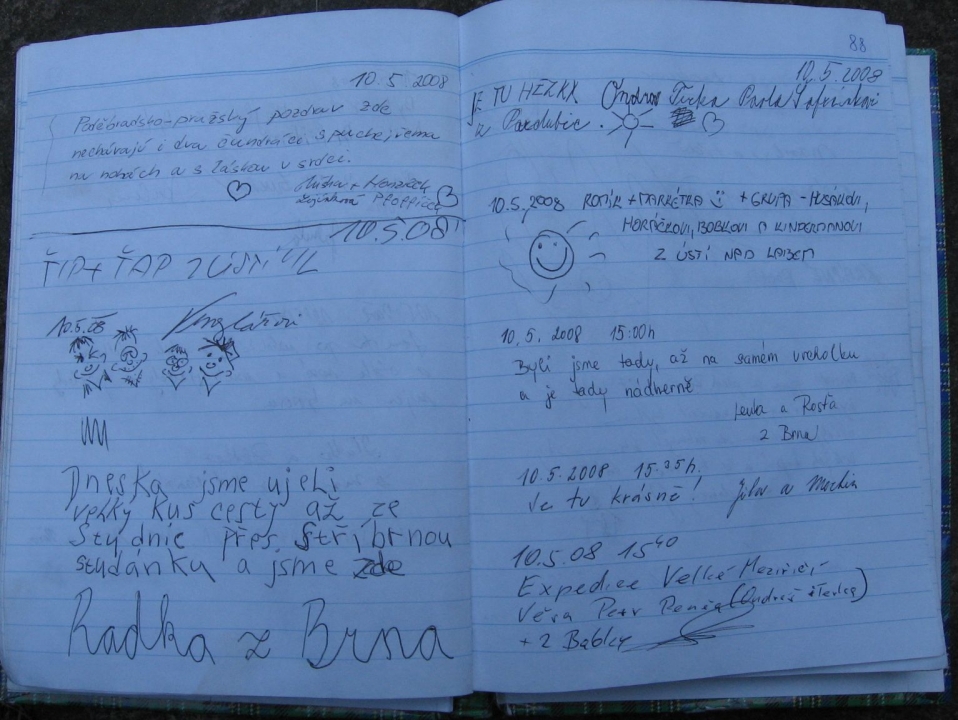 10.5.2008
Poděbradsko-pražský pozdrav zde
nechávají i dva čundráci s puchejřema
na nohách a s láskou v srdci.
10.5.08
ŤIP+ŤAP Z ÚSTÍ
10.5.08
Dneska jsme ujeli
velký kus cesty až ze
Studnic přes Stříbrnou
studánku a jsme zde
Radka z Brna
88
10.5.2008
JE TU HEZKX Ondra Pavla
z Pardubic.
10.5.2008 ROMÍK + MARKÉTKA + GRUPA - HUSÁKOVI,
HORÁČKOVI, BOBKOVI A KINDERMANOVI
Z ÚSTÍ NAD LABEM
10.5.2008 15:00h
Byli jsme tady, až na samém vrcholku
a je tady nádherně
Lenka a Rosťa
z Brna
10.5.2008 15.35h.
Je tu krásně! a
10.5.08 15 40
Expedice Velké Meziříčí,-
Věra Petr
+ 2 Bábky